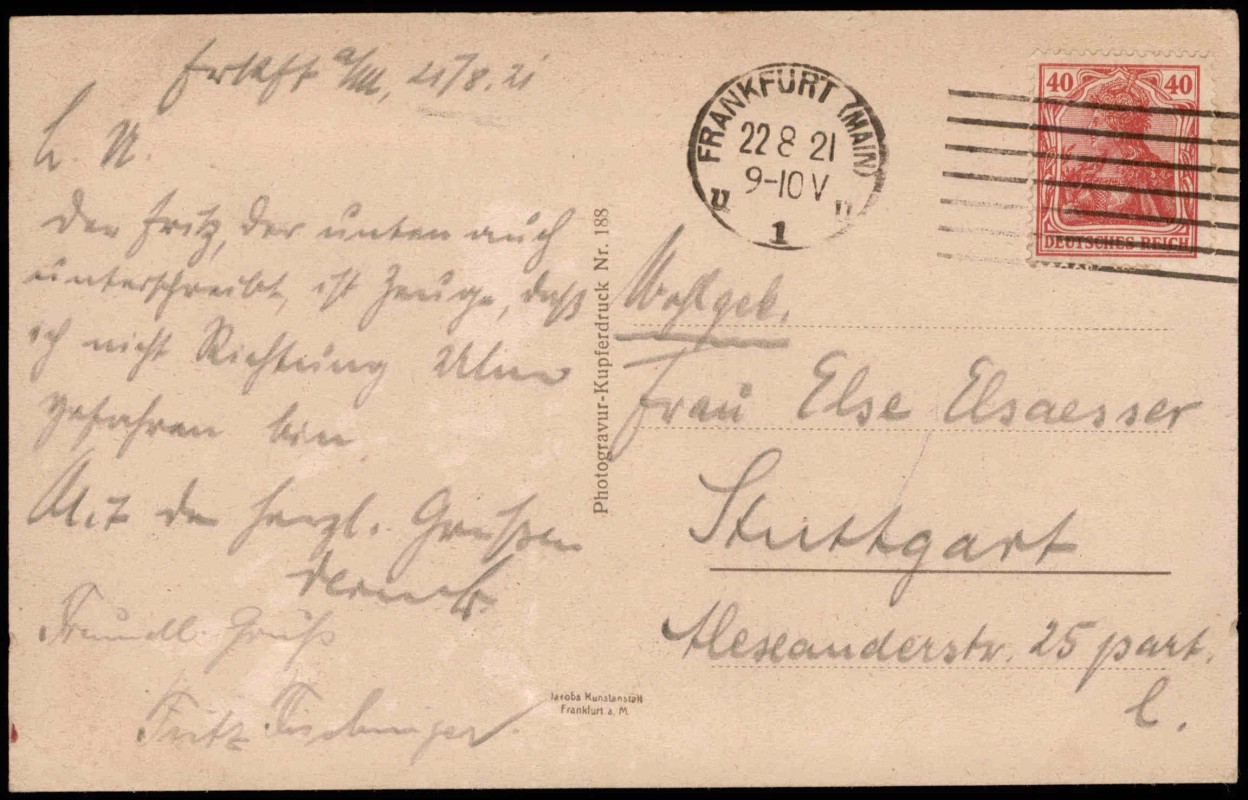 Frkft a/M, 21/8.21
L. U.
Der Fritz, der unten auch
unterschreibt, ist Zeuge, daß
ich nicht Richtung Ulm
gefahren bin.
Mit den herzl. Grüßen
Freundl. Gruß
Fritz
Photogravur-Kupferdruck Nr. 188
Jacobs Kunstanstalt
Frankfurt a. M.
FRANKFURT (MAIN)
22 8 21
9-10 V
1
40 40
DEUTSCHES REICH
Wohlgeb.
Frau Else Elsaesser
Stuttgart
Alexanderstr. 25 part.
l.